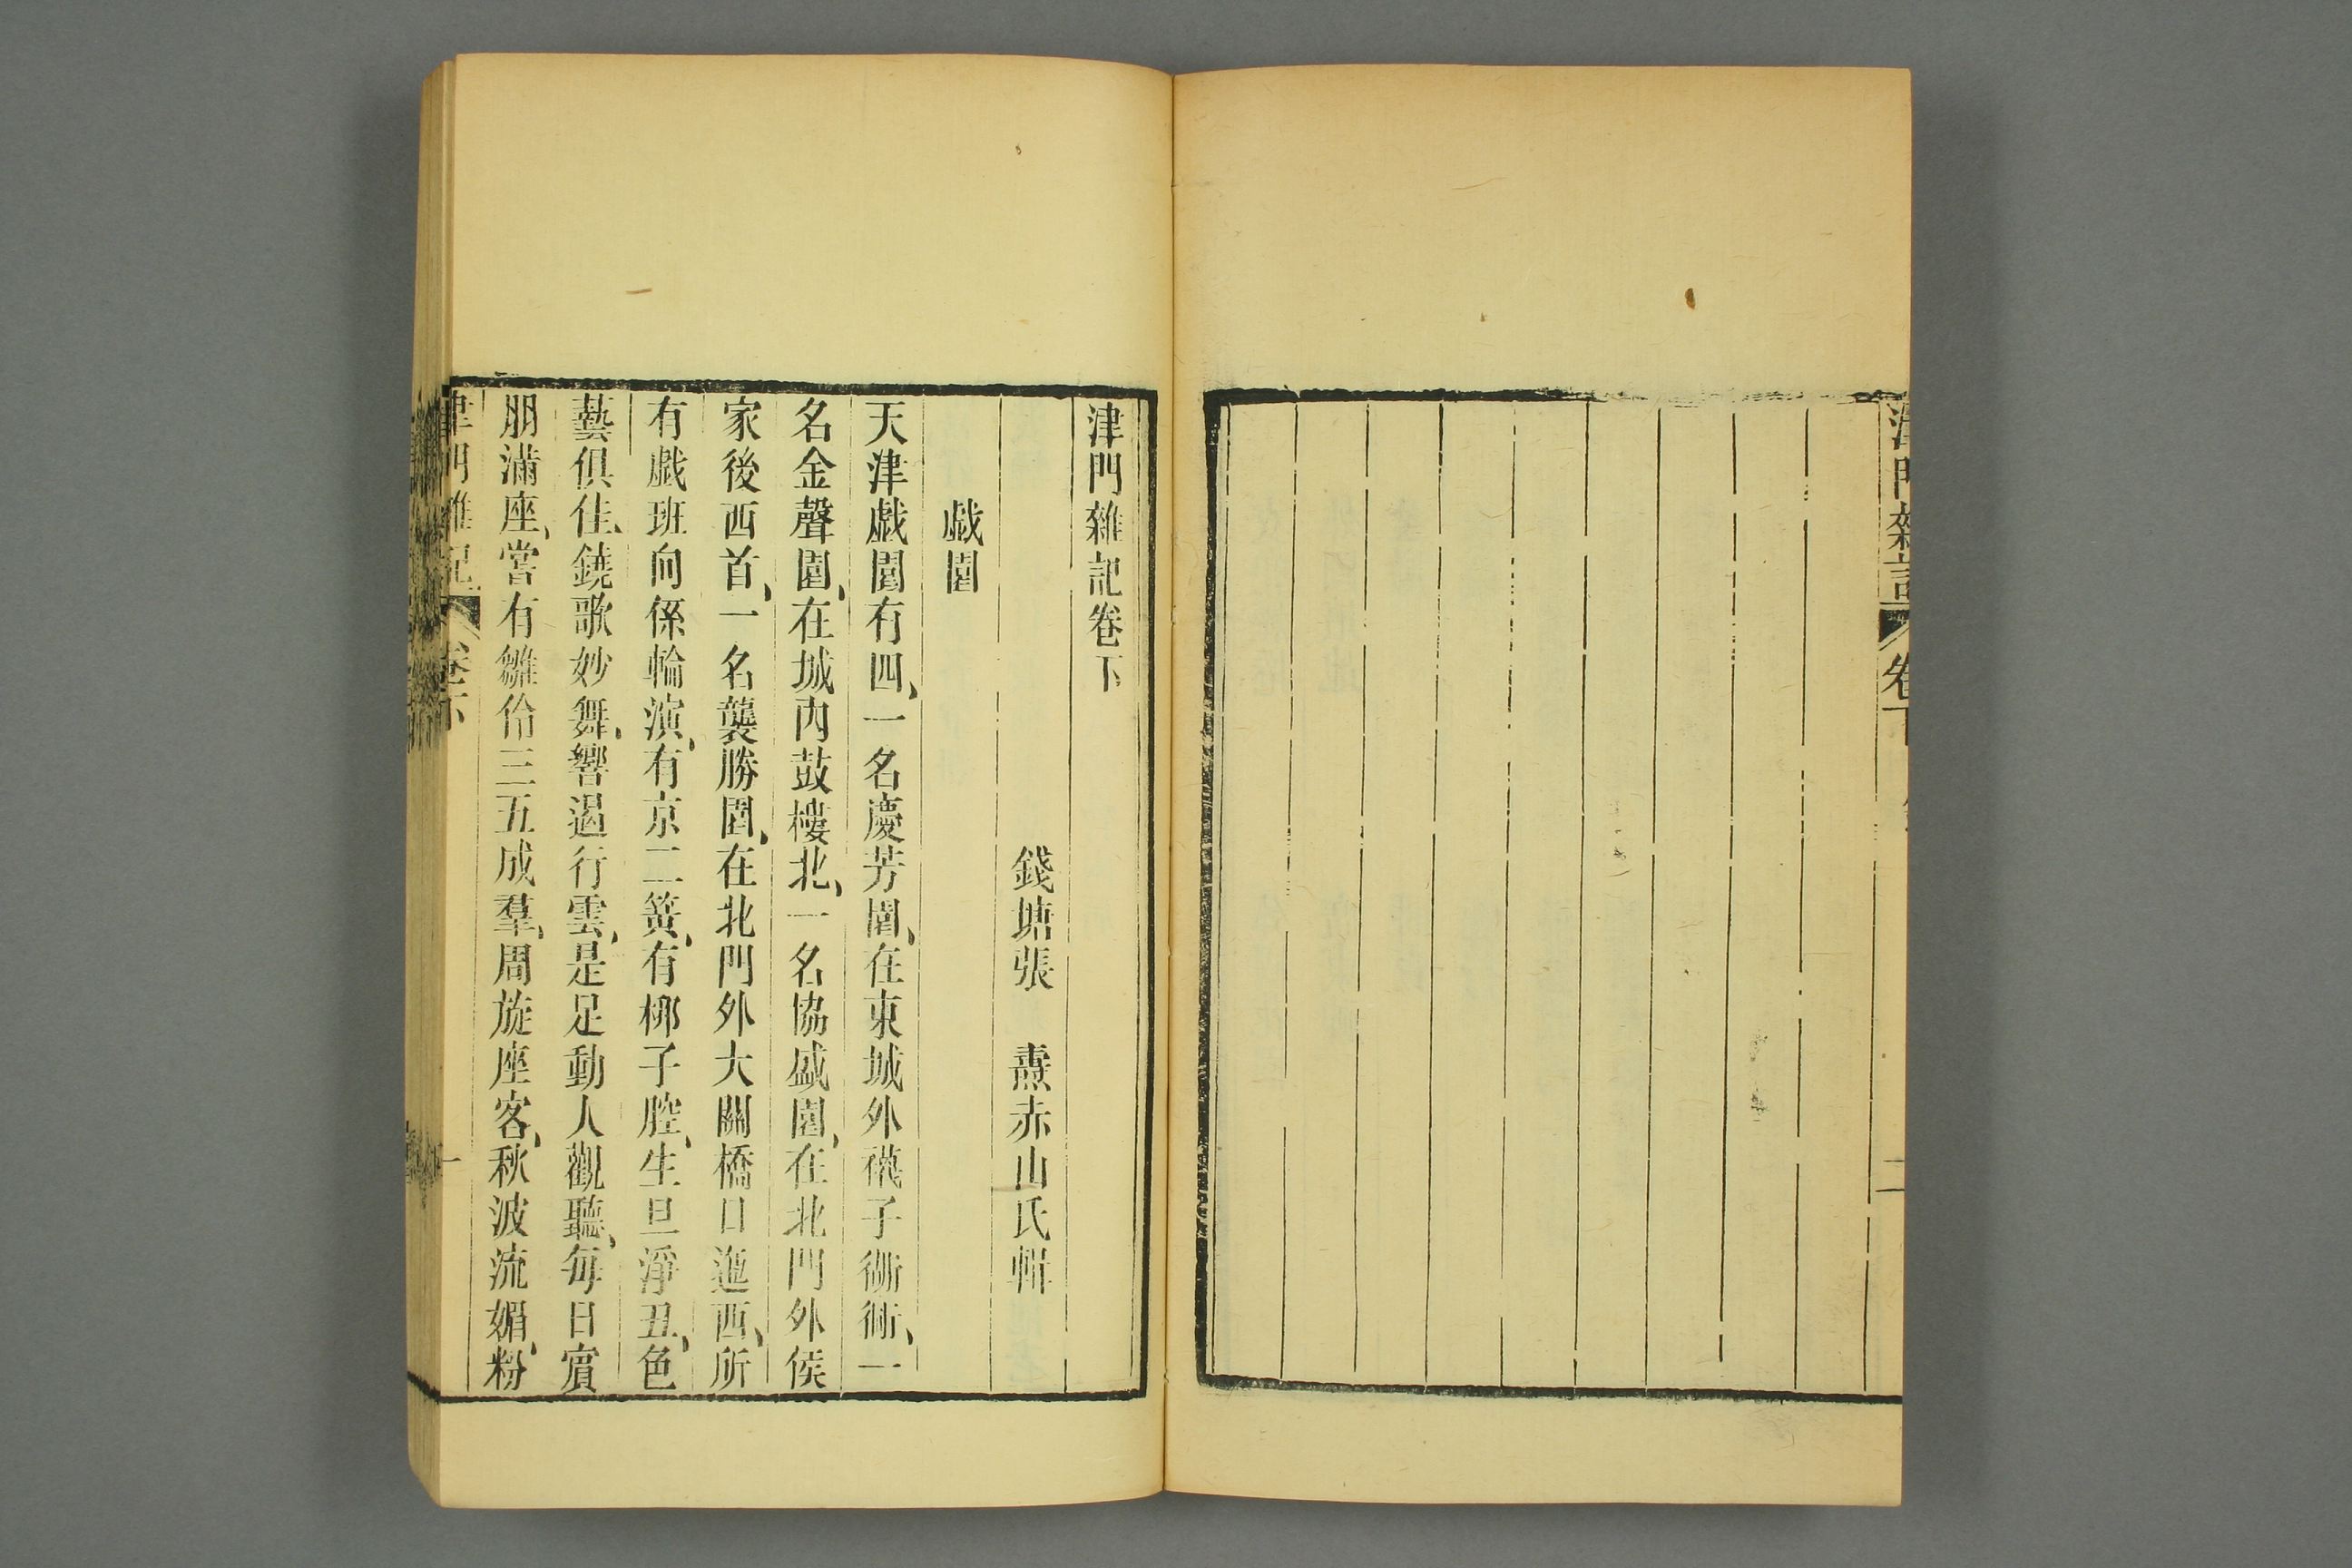 津門雜記
卷下
二
津門雜記卷下
錢塘張　燾赤山氏輯
戯園
天津戯園有四、一名慶芳園、在東城外襪子衚衕、一
名金聲園、在城內鼓樓北、一名協盛園、在北門外侯
家後西首、一名襲勝園、在北門外大關橋口迤西、所
有戯班向係輪演、有京二簧、有梆子腔、生旦淨丑、色
藝俱佳、鐃歌妙舞、響遏行雲、是足動人觀聽、每日賓
朋滿座、嘗有雛伶三五成羣、周旋座客、秋波流媚、粉
津門雜記
卷下
一